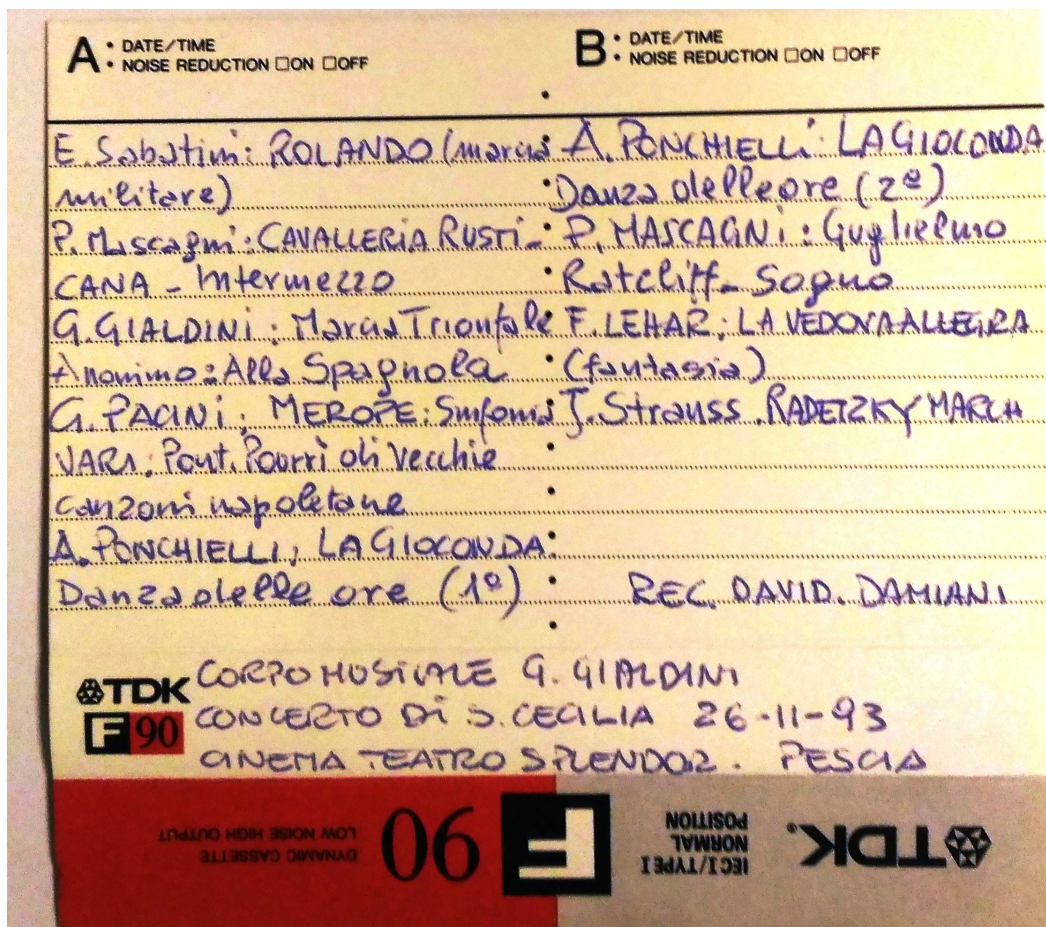 A • DATE/TIME
• NOISE REDUCTION □ON □OFF
B • DATE/TIME
• NOISE REDUCTION □ON □OFF
E. Sabatini: ROLANDO (marcia
militare)
P. Mascagni: CAVALLERIA RUSTI-
CANA - Intermezzo
G. GIALDINI: Marcia Trionfale
Anonimo: Alla Spagnola
G. PACINI: MEROPE: Sinfonia
VARI: Pout. Pourrì di vecchie
canzoni napoletane
A. PONCHIELLI, LA GIOCONDA:
Danza delle ore (1ª)
A. PONCHIELLI: LA GIOCONDA
Danza delle ore (2ª)
P. MASCAGNI: Guglielmo
Ratcliff - Sogno
F. LEHAR: LA VEDOVA ALLEGRA
(fantasia)
J. Strauss. RADETZKY MARCH
REC. DAVID. DAMIANI
TDK
F 90
CORPO MUSICALE G. GIALDINI
CONCERTO DI S. CECILIA 26-11-93
CINEMA TEATRO SPLENDOR. PESCIA
TDK®
IEC I/TYPE I
NORMAL
POSITION
F
90
DYNAMIC CASSETTE
LOW NOISE HIGH OUTPUT